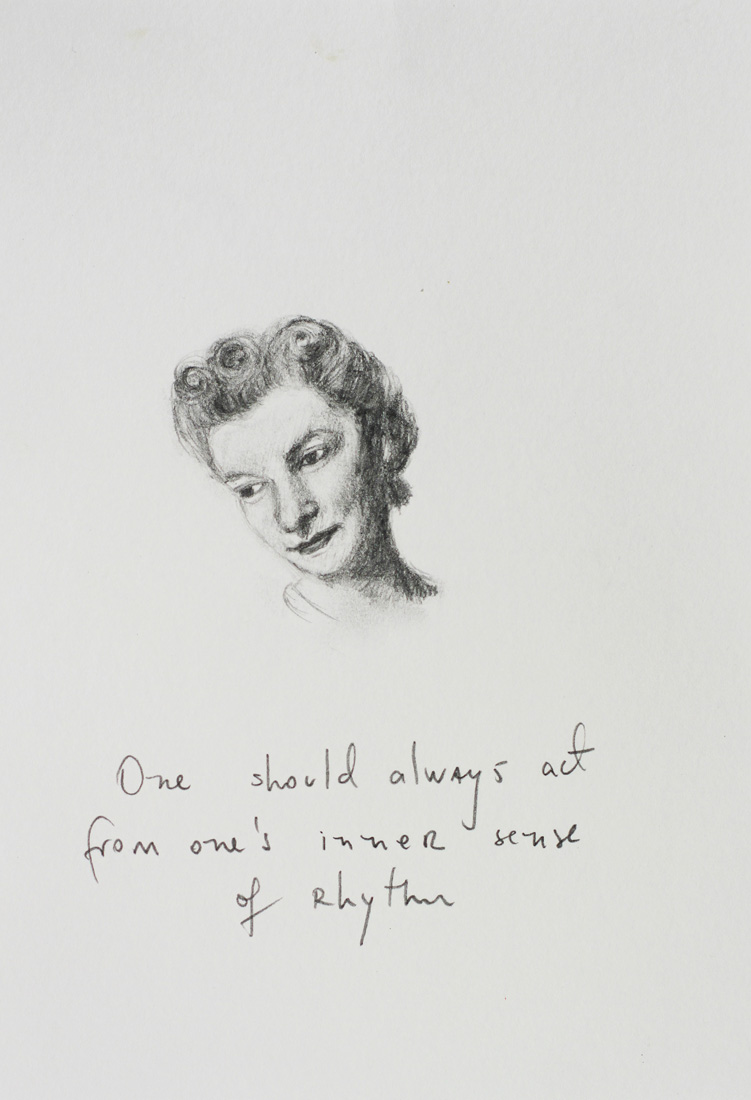 One should always act
from one's inner sense
of Rhythm